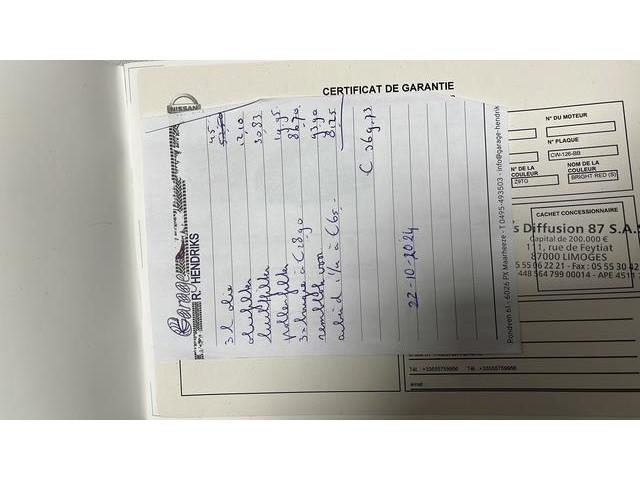 NISSAN
CERTIFICAT DE GARANTIE
N° DU MOTEUR
N° PLAQUE
CW-126-BB
N° DE LA COULEUR
Z9TG
NOM DE LA COULEUR
BRIGHT RED (S)
CACHET CONCESSIONNAIRE
s Diffusion 87 S.A.S
Capital de 200.000 €
111, rue de Feytiat
87000 LIMOGES
5 55 06 22 21 - Fax : 05 55 30 42
448 564 799 00014 - APE 4511
Tél. : +33555759966 Tél. : +33555759966
email :
Garage
HENDRIKS
3 l olie 45,
oliefilter 12,10
luchtfilter 30,83
pollenfilter 14,95
3x bougie à € 28,90 86,70
remblok voor 93,90
arbeid
€ 369,73
22-10-2024
Rondven 61 - 6026 PX Maarheeze - T 0495-493503 - info@garage-hendrik